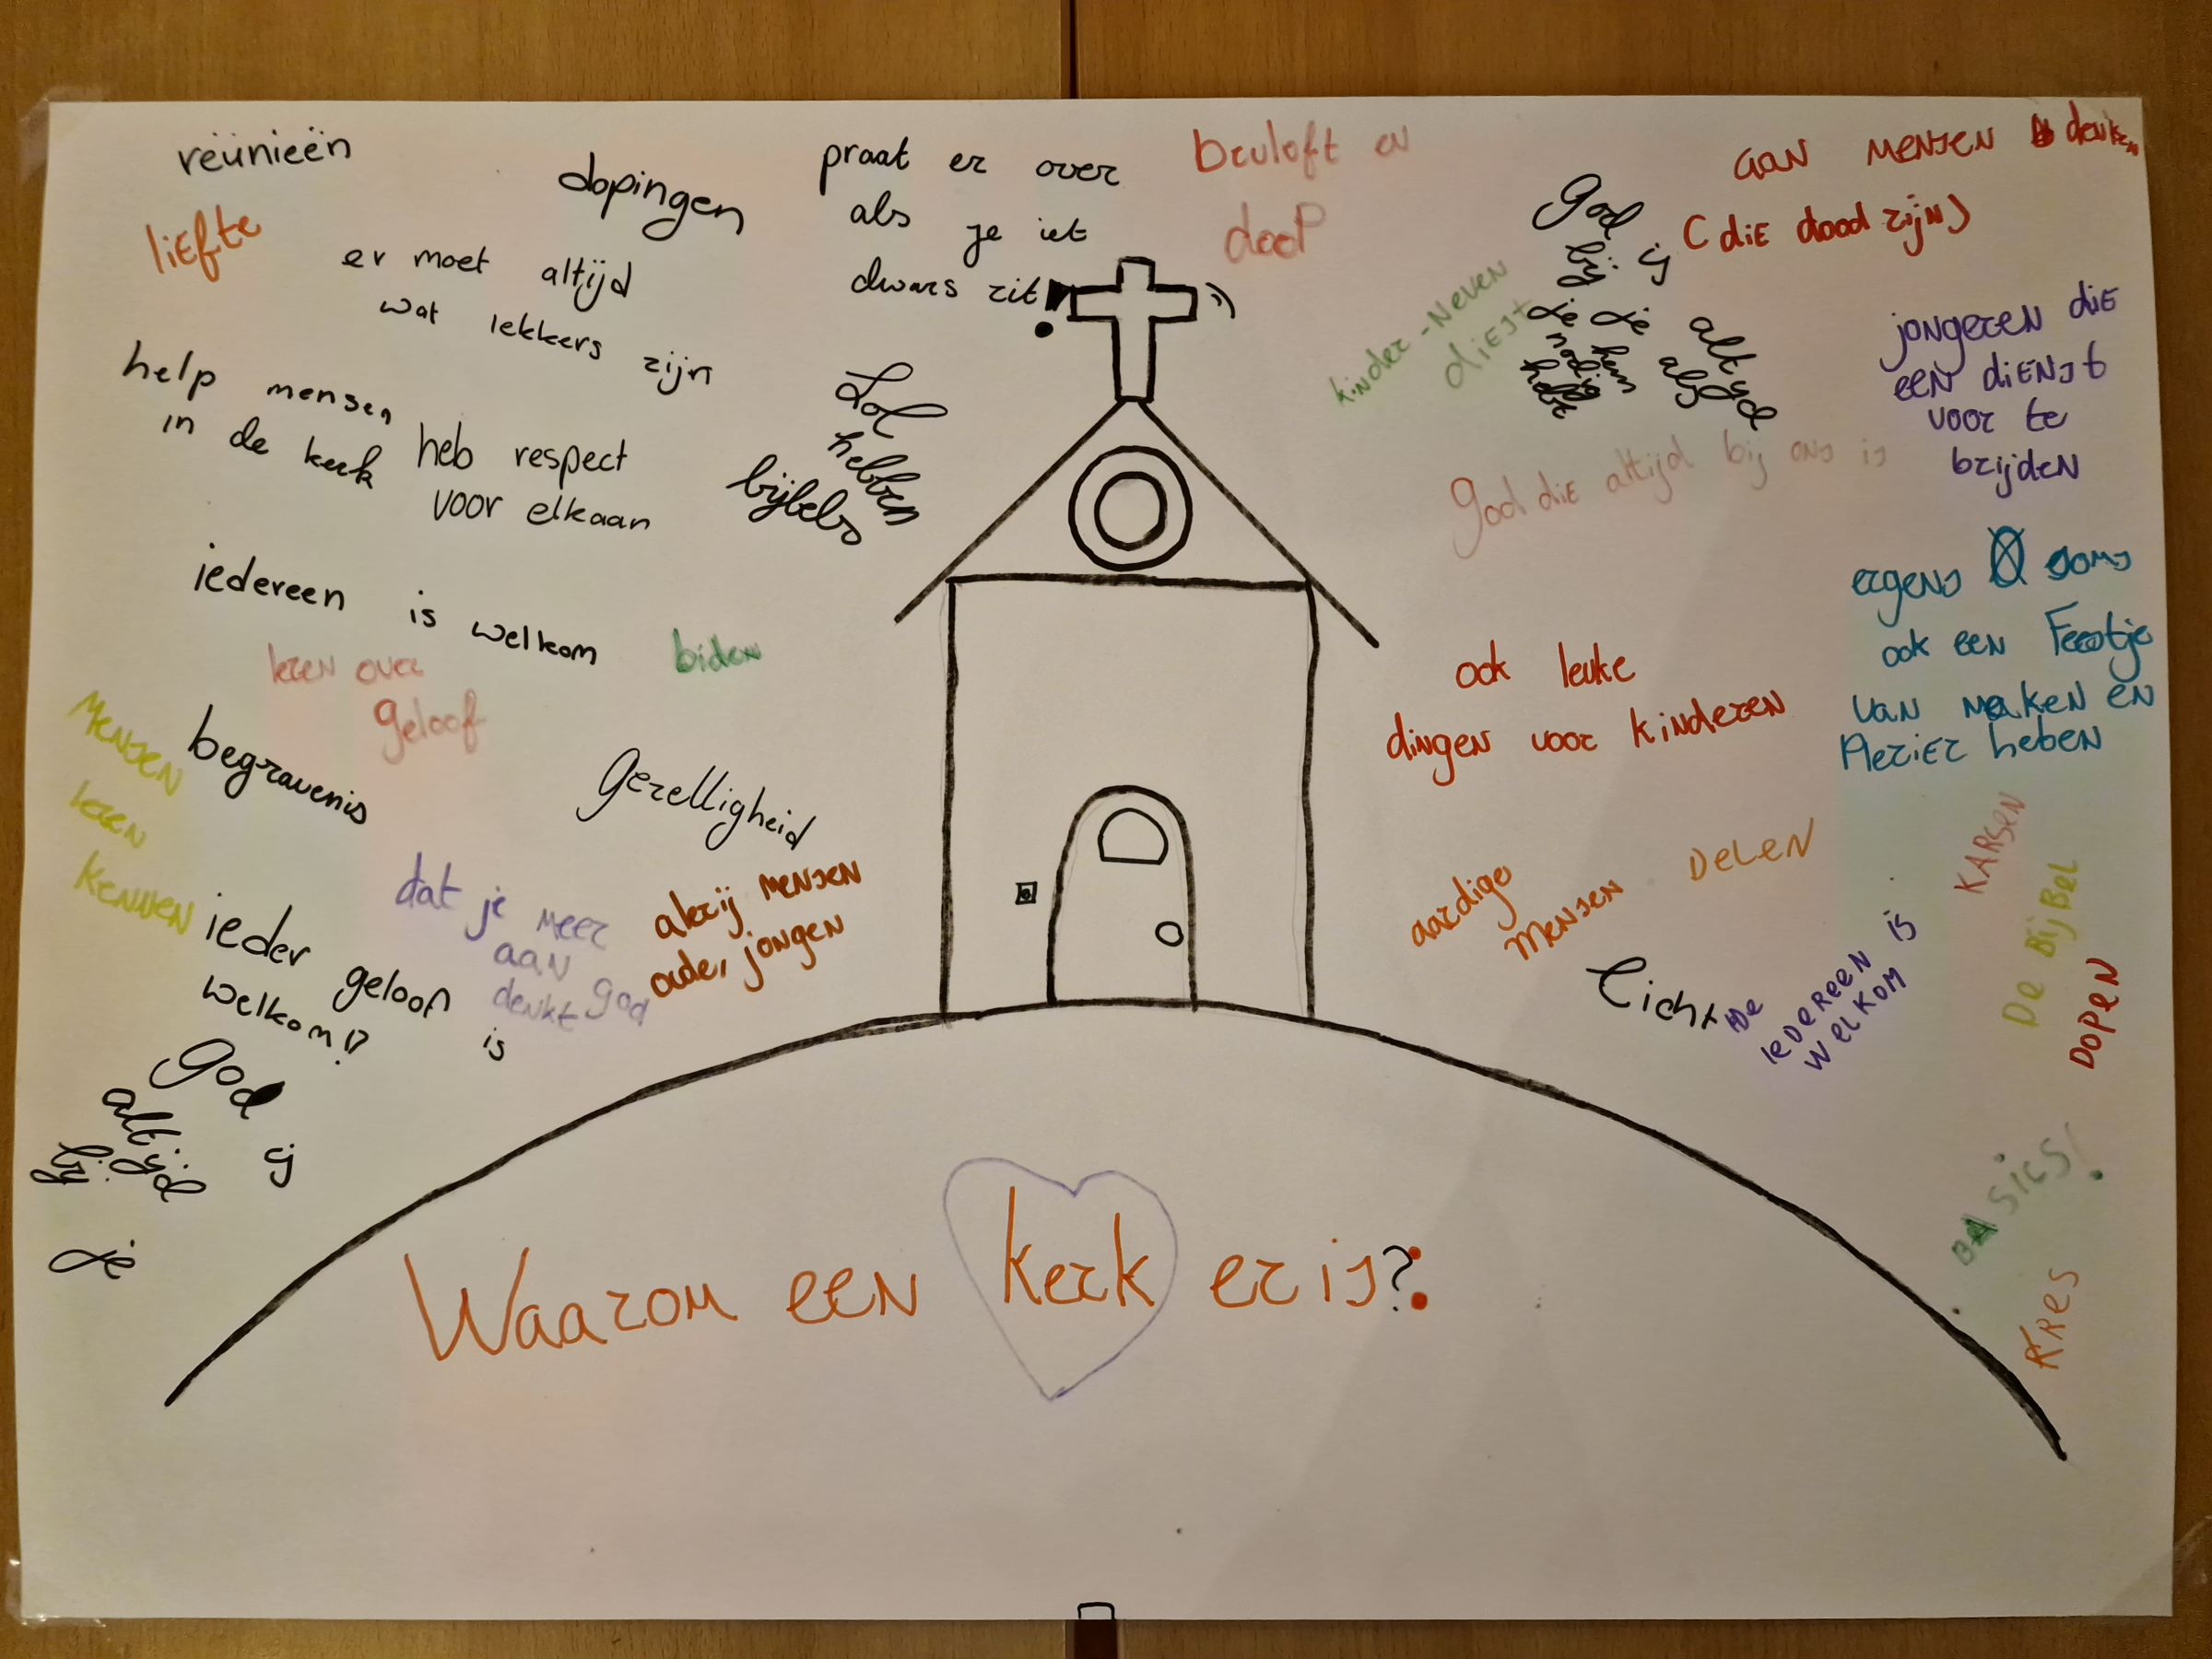 reünieën
liefte
dopingen
er moet altijd
wat lekkers zijn
praat er over
als je iet
dwars zit!
bruloft en
dooP
help mensen
in de kerk
heb respect
voor elkaan
Lol
hebben
bijbels
iedereen is welkom
biden
leren over
geloof
MENSEN
leren
KENNEN
begravenis
gezelligheid
dat je MEER
aan god
denkt
alerij MENSEN
oude, jongen
ieder geloof is
welkom!?
god is
altijd
bij
je
kinder-Neven
diEst
god is
bij
je altyd
je als
hem
nodig
hebt
aan MENSEN denken
(diE dood zijN)
jongeren diE
eeN diENst
voor te
brijdeN
god diE altijd bij ons is
ook leuke
dingen voor kinderen
ergens soms
ook een Feestje
van maken en
Plezier heben
aardige
MENSEN
DELEN
KARSEN
De BijBel
DOPEN
licht
IEDEREEN is
WELKOM
BASICS!
KRES
Waarom een kerk er is?